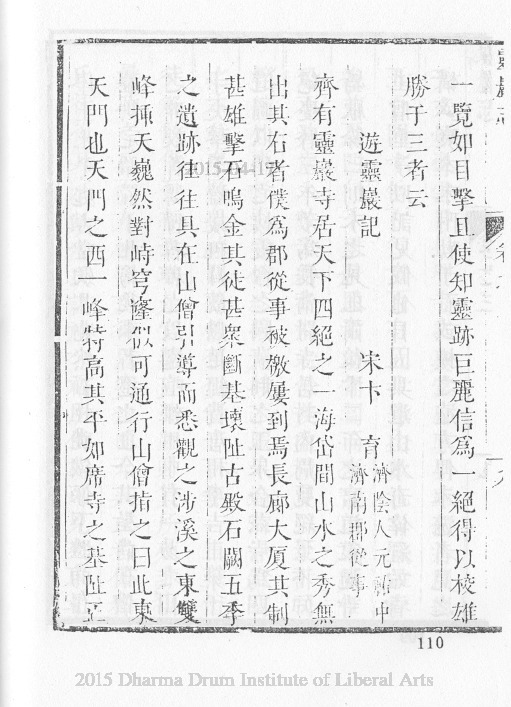 一覽如目擊且使知靈跡巨麗信爲一絕得以棱雄
勝于三者云
遊靈巖記　宋卞　育濟陰人元祐中濟南郡從事
齊有靈巖寺居天下四絕之一海岱間山水之秀無
出其右者僕爲郡從事被檄屢到焉長廊大厦其制
甚雄擊石鳴金其徒甚衆斷基壞址古殿石闕五季
之遺跡往往具在山僧引導而悉觀之涉溪之東雙
峰揷天巍然對峙穹窿似可通行山僧指之曰此東
天門也天門之西一峰特高其平如席寺之基址正
110
2015 Dharma Drum Institute of Liberal Arts